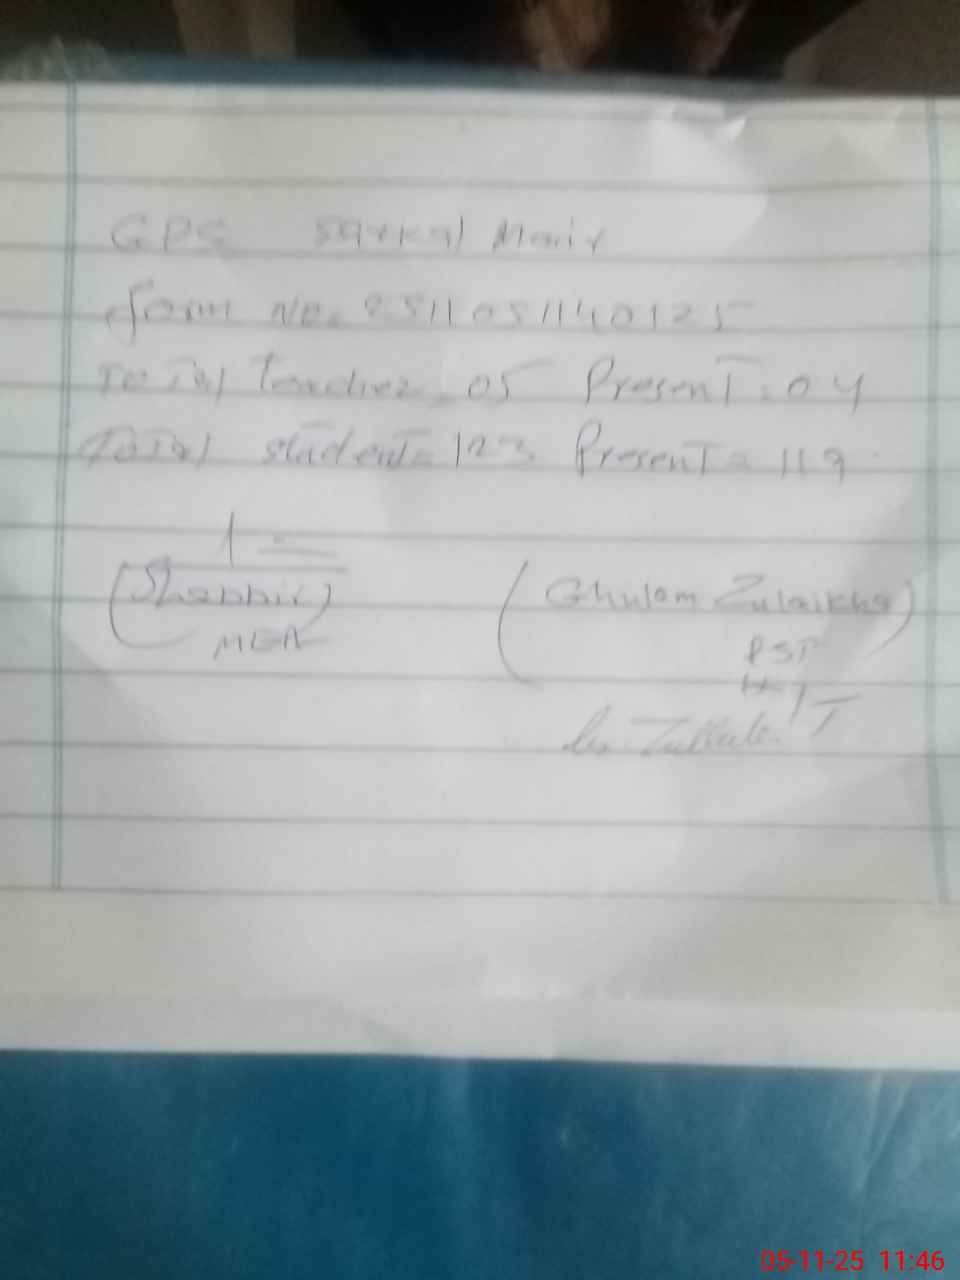 GPS Sarkal Marix
form No. 2511051140125
Total teacher = 05 Present = 04
Total student = 123 Present = 119
(Shabbir) (Ghulam Zulaikha)
MEA PST
H/T
05-11-25 11:46